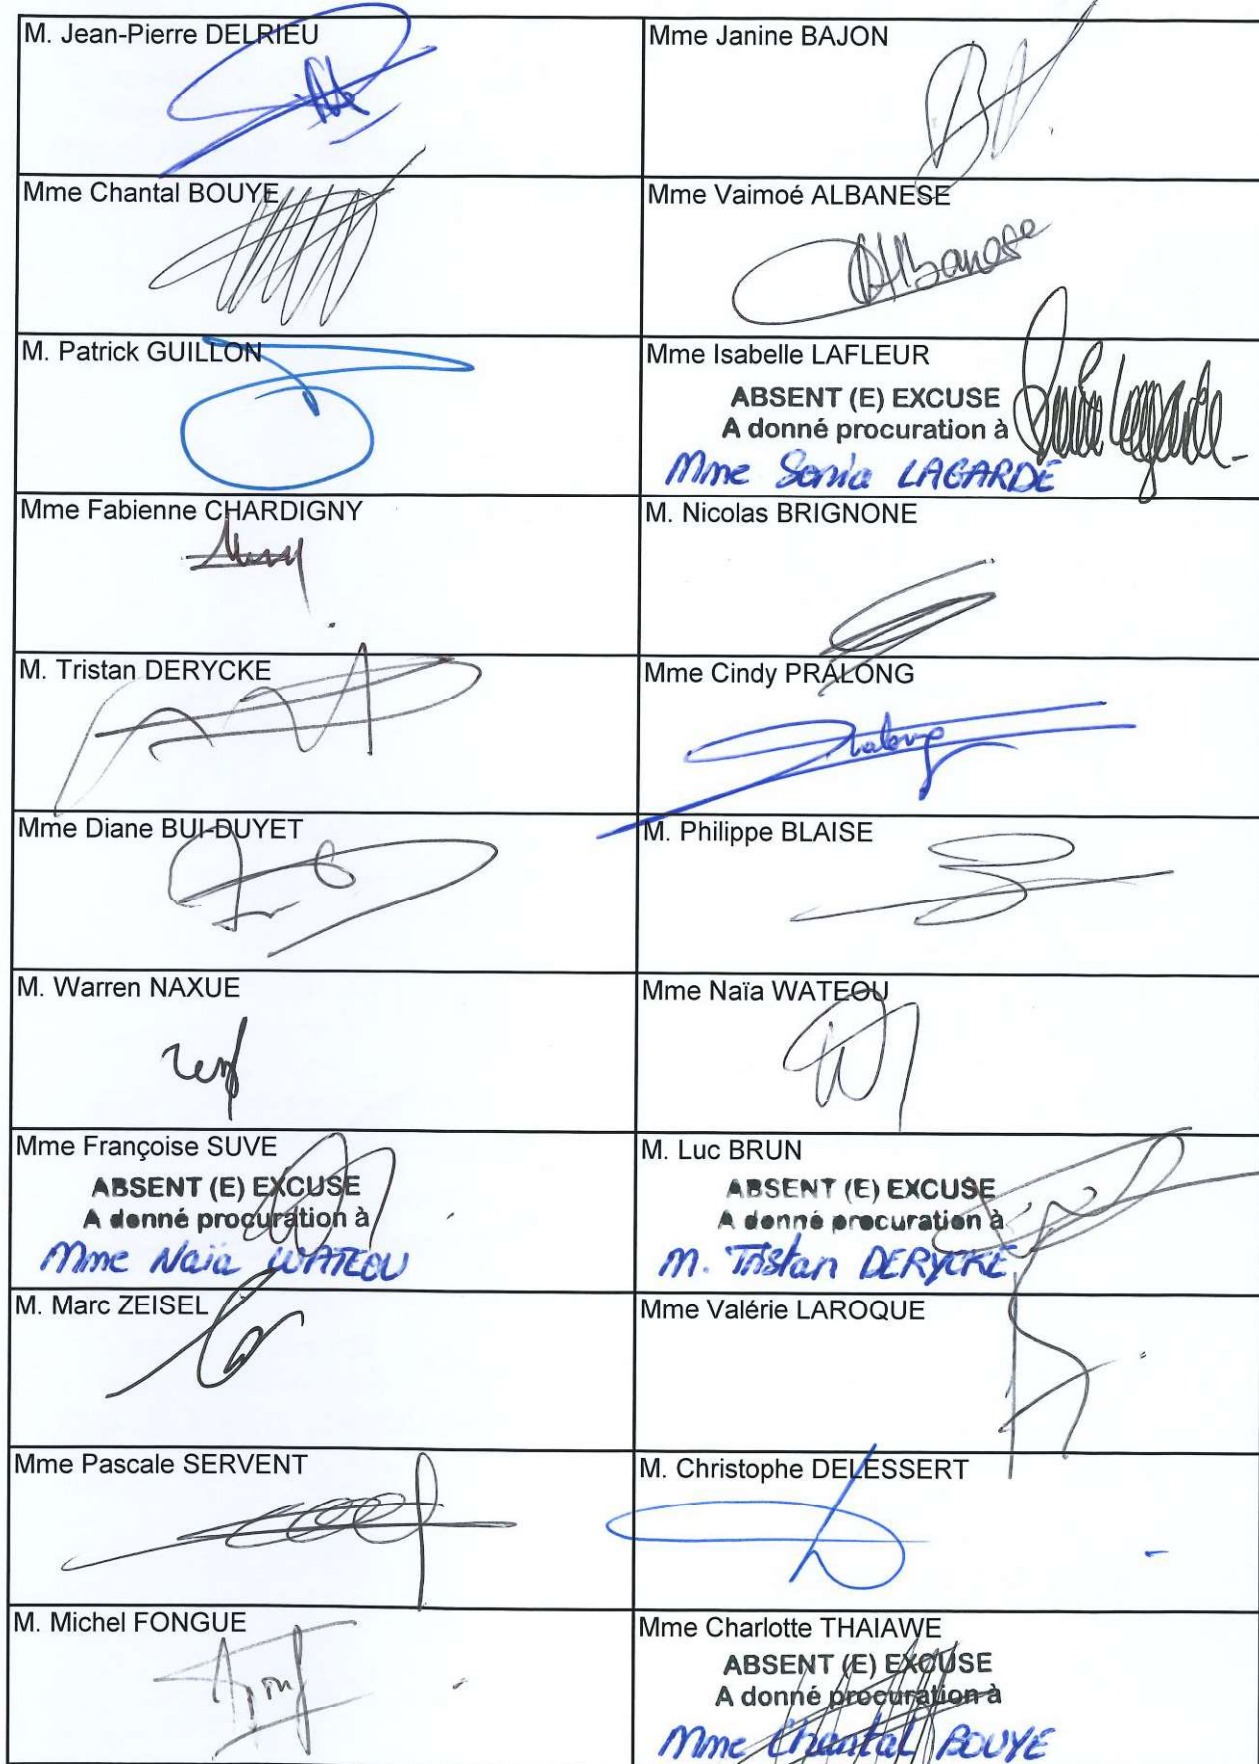 M. Jean-Pierre DELRIEU
Mme Janine BAJON
Mme Chantal BOUYE
Mme Vaimoé ALBANESE
Albanese
M. Patrick GUILLON
Mme Isabelle LAFLEUR
ABSENT (E) EXCUSE
A donné procuration à
Mme Sonia LAGARDE
Mme Fabienne CHARDIGNY
M. Nicolas BRIGNONE
M. Tristan DERYCKE
Mme Cindy PRALONG
Mme Diane BUI-DUYET
M. Philippe BLAISE
M. Warren NAXUE
Mme Naïa WATEOU
Mme Françoise SUVE
ABSENT (E) EXCUSE
A donné procuration à
Mme Naïa WATEOU
M. Luc BRUN
ABSENT (E) EXCUSE
A donné procuration à
M. Tristan DERYCKE
M. Marc ZEISEL
Mme Valérie LAROQUE
Mme Pascale SERVENT
M. Christophe DELESSERT
M. Michel FONGUE
Mme Charlotte THAIAWE
ABSENT (E) EXCUSE
A donné procuration à
Mme Chantal BOUYE